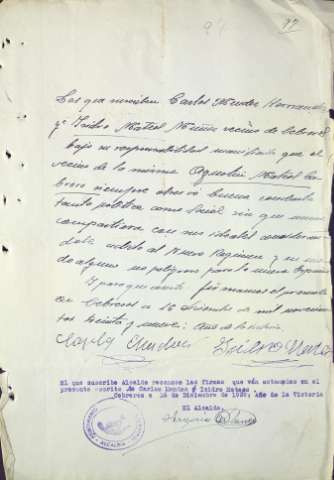 77
Los que suscriben Carlos Mendez Hernandez
y Isidro Mateos Muñoz vecinos de Cebreros
bajo su responsabilidad manifiestan que el
vecino de la misma Agustin Mateos
siempre observó buena conducta
tanto pública como social sin que nunca
compartiera con sus ideales
adicto al Nuevo Regimen y en
de alguno es peligroso para la nueva España
Y para que conste firmamos el presente
en Cebreros a 16 Diciembre de mil novecien
tos treinta y nueve: Año de la Victoria
Carlos Mendez Isidro Mateos
El que suscribe Alcalde reconoce las firmas que van estampadas en el
presente escrito de Carlos Mendez y Isidro Mateos
Cebreros a 16 de Diciembre de 1939, Año de la Victoria
El Alcalde,
ALCALDIA